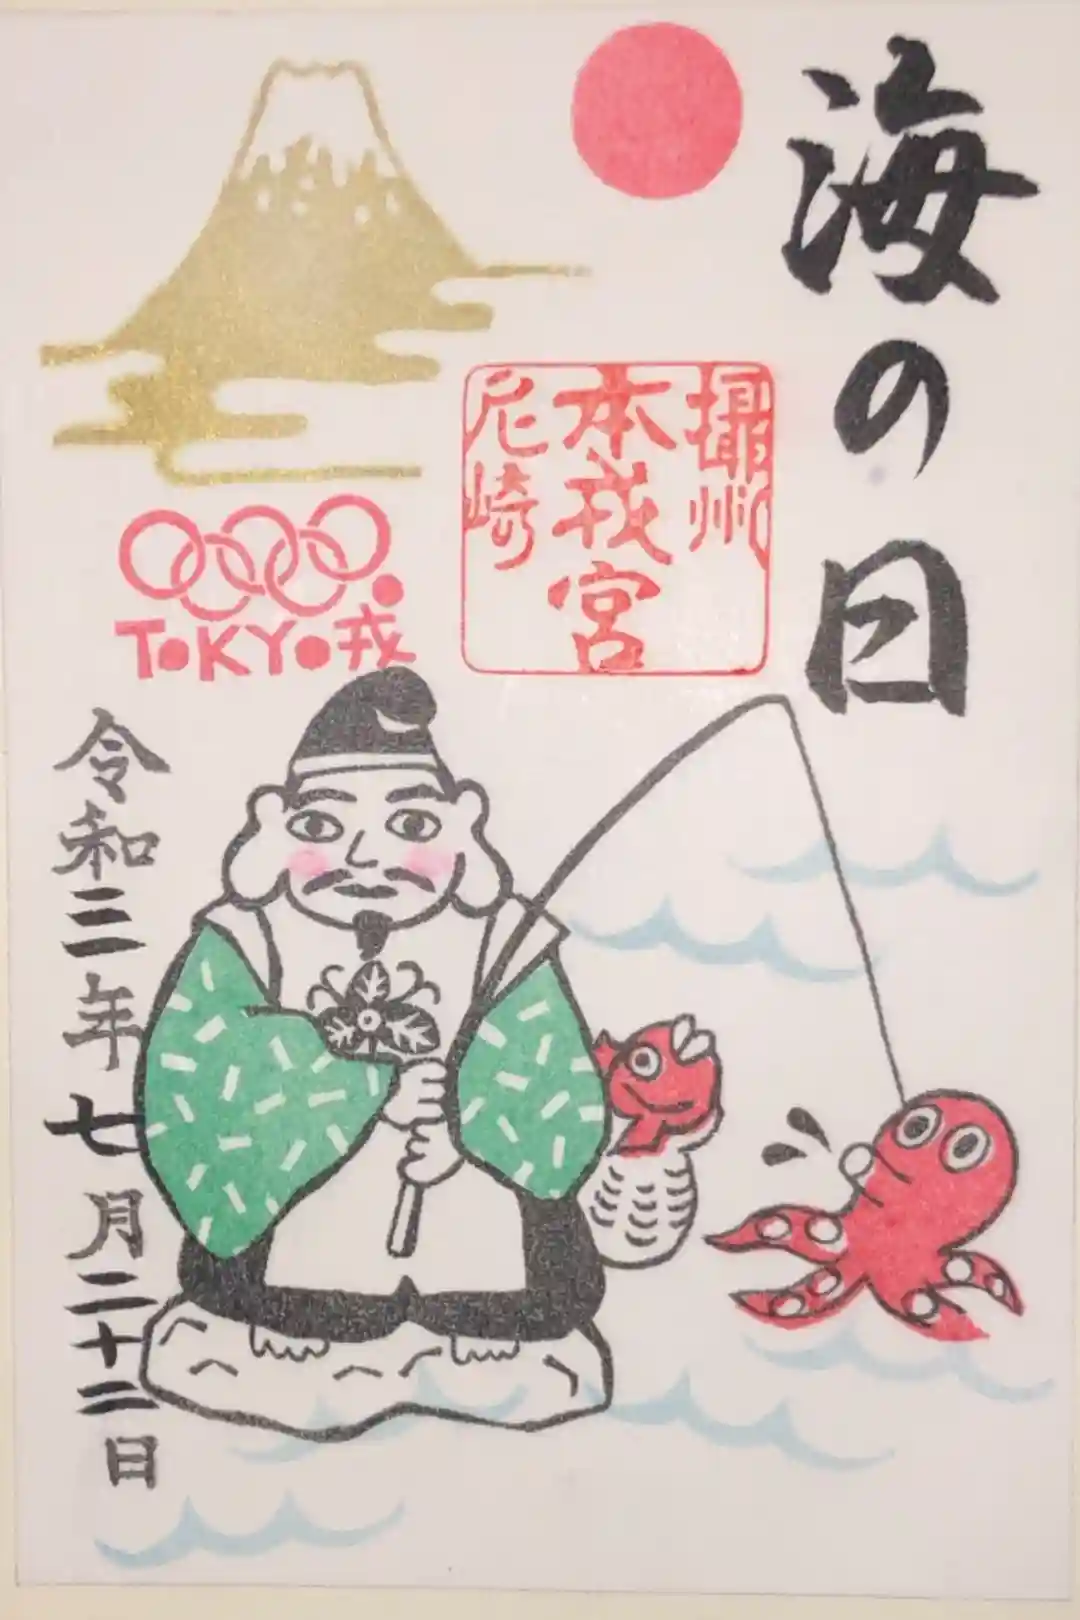 海の日
攝州
本戎宮
尼崎
TOKYO戎
令和三年七月二十二日